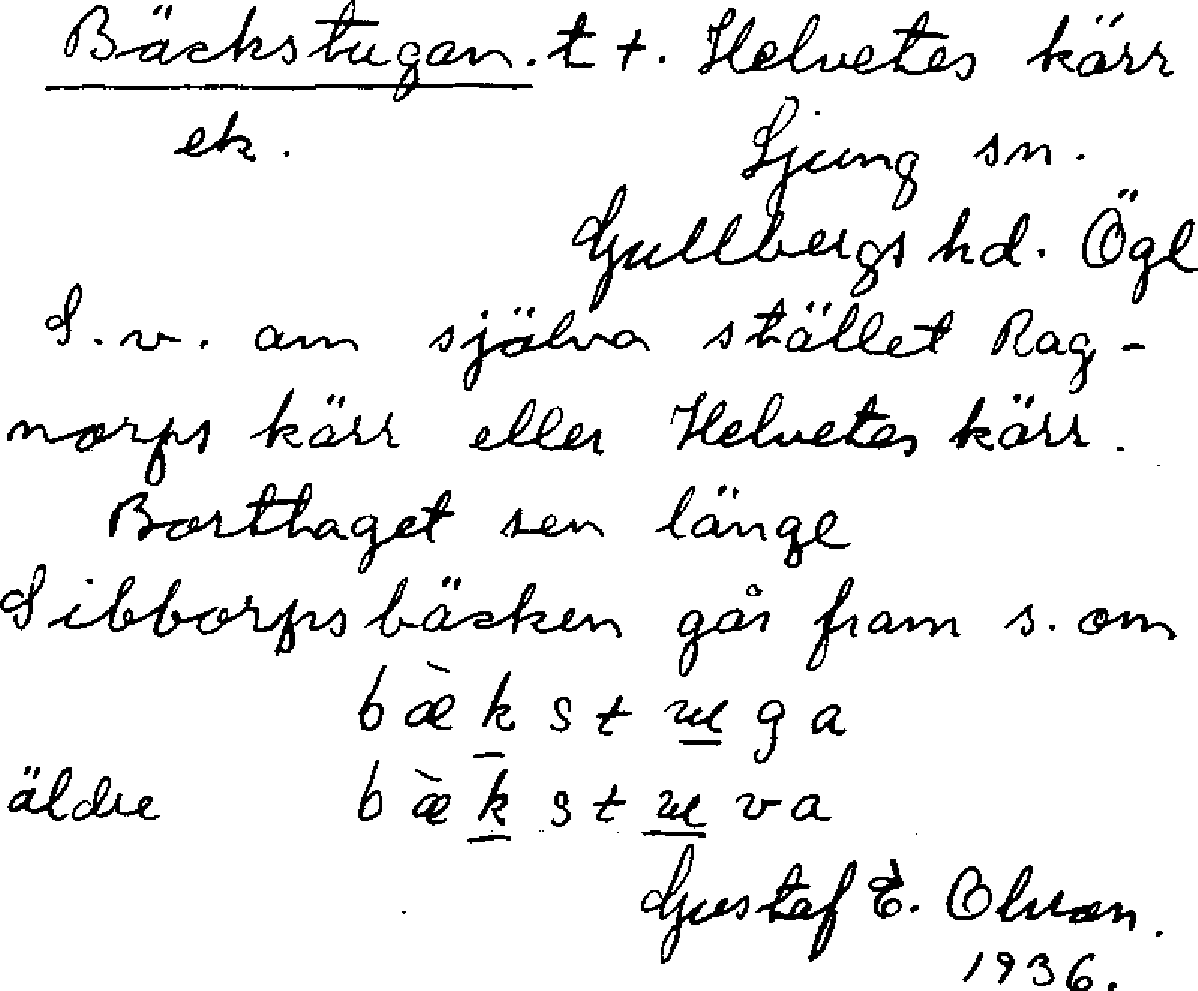 Bäckstugan. t +. Helvetes kärr
ek. Ljung sn.
Gullbergs hd. Ögl
S. v. om själva stället Rag-
norps kärr eller Helvetes kärr.
Borttaget sen länge
Sibborpsbäcken går fram s. om
b æ̀ k s t ɯ g a
äldre b æ̀ k s t ɯ v a
Gustaf E. Olson.
1936.